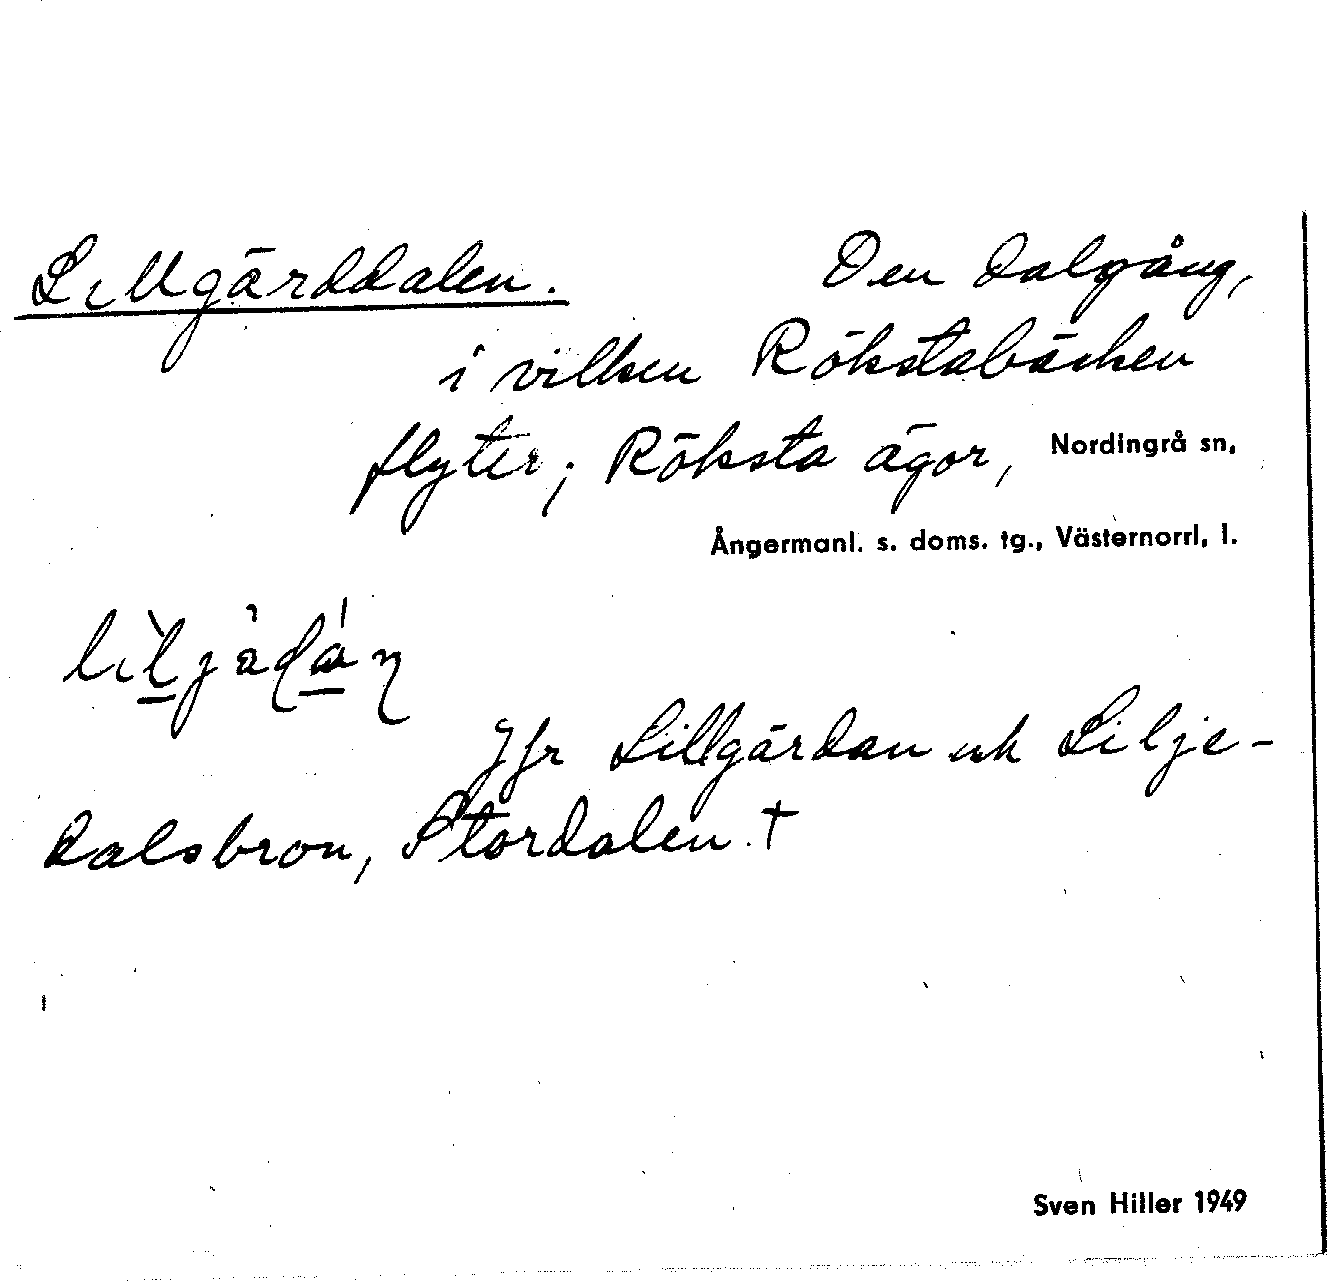 Lillgärddalen. Den dalgång,
i vilken Rökstabäcken
flyter; Röksta ägor, Nordingrå sn,
Ångermanl. s. doms. tg., Västernorrl. l.
Jfr Lillgärdan och Lilje-
dalsbron, Stordalen. +
Sven Hiller 1949